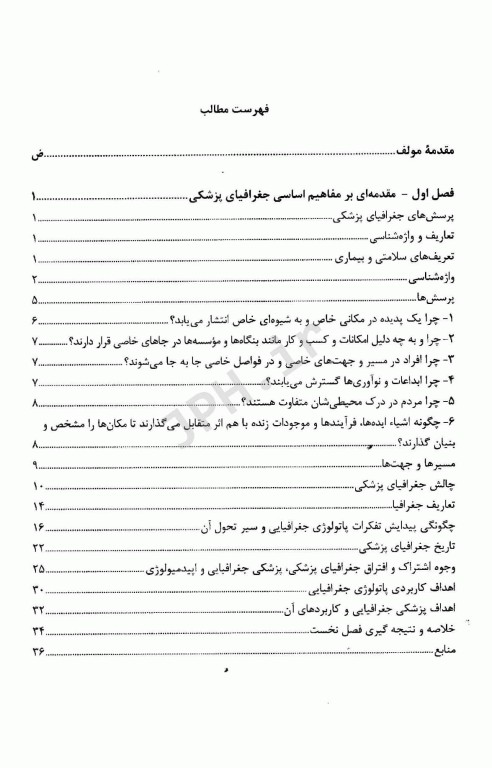 فهرست مطالب
مقدمهٔ مولف....................ض
فصل اول - مقدمه‌ای بر مفاهیم اساسی جغرافیای پزشکی....................۱
پرسش‌های جغرافیای پزشکی....................۱
تعاریف و واژه‌شناسی....................۱
تعریف‌های سلامتی و بیماری....................۱
واژه‌شناسی....................۲
پرسش‌ها....................۵
۱- چرا یک پدیده در مکانی خاص و به شیوه‌ای خاص انتشار می‌یابد؟....................۶
۲- چرا و به چه دلیل امکانات و کسب و کار مانند بنگاه‌ها و مؤسسه‌ها در جاهای خاصی قرار دارند؟....................۷
۳- چرا افراد در مسیر و جهت‌های خاصی و در فواصل خاصی جا به جا می‌شوند؟....................۷
۴- چرا ابداعات و نوآوری‌ها گسترش می‌یابند؟....................۷
۵- چرا مردم در درک محیطی‌شان متفاوت هستند؟....................۸
۶- چگونه اشیاء ایده‌ها، فرآیندها و موجودات زنده با هم اثر متقابل می‌گذارند تا مکان‌ها را مشخص و
بنیان گذارند؟....................۸
مسیرها و جهت‌ها....................۹
چالش جغرافیای پزشکی....................۱۰
تعاریف جغرافیا....................۱۴
چگونگی پیدایش تفکرات پاتولوژی جغرافیایی و سیر تحول آن....................۱۶
تاریخ جغرافیای پزشکی....................۲۲
وجوه اشتراک و افتراق جغرافیای پزشکی، پزشکی جغرافیایی و اپیدمیولوژی....................۲۵
اهداف کاربردی پاتولوژی جغرافیایی....................۳۰
اهداف پزشکی جغرافیایی و کاربردهای آن....................۳۲
خلاصه و نتیجه گیری فصل نخست....................۳۴
منابع....................۳۶
JPH.ir